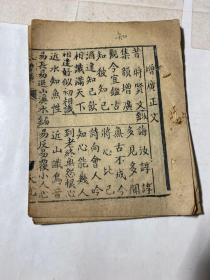 知
增廣正文
昔時賢文 誨汝諄諄
集韻增廣 多見多聞
觀今宜鑑古 無古不成今
知彼知己 將心比心
酒逢知己飲 詩向會人吟
相識滿天下 知心能幾人
相逢好似初相識 到老終無怨恨心
近水知魚性 近山識鳥音
易長易退山溪水 易反易覆小人心